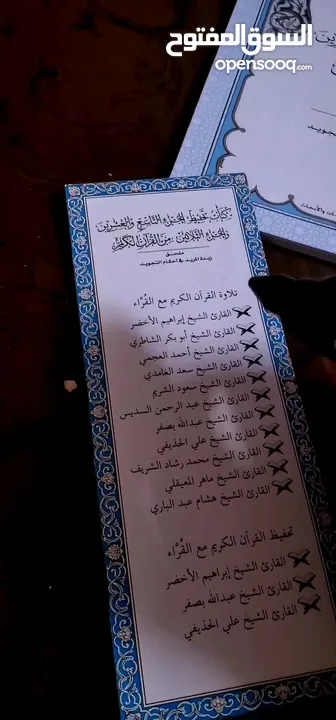 السوق المفتوح
opensooq.com
كتاب تحفيظ الجزء التاسع والعشرين
والجزء الثلاثين من القرآن الكريم
ملحق
زبدة المزيد في أحكام التجويد
تلاوة القرآن الكريم مع القُرّاء
القارئ الشيخ إبراهيم الأخضر
القارئ الشيخ أبو بكر الشاطري
القارئ الشيخ أحمد العجمي
القارئ الشيخ سعد الغامدي
القارئ الشيخ سعود الشريم
القارئ الشيخ عبد الرحمن السديس
القارئ الشيخ عبدالله بصفر
القارئ الشيخ علي الحذيفي
القارئ الشيخ محمد رشاد الشريف
القارئ الشيخ ماهر المعيقلي
القارئ الشيخ هشام عبد الباري
تحفيظ القرآن الكريم مع القُرّاء
القارئ الشيخ إبراهيم الأخضر
القارئ الشيخ عبدالله بصفر
القارئ الشيخ علي الحذيفي